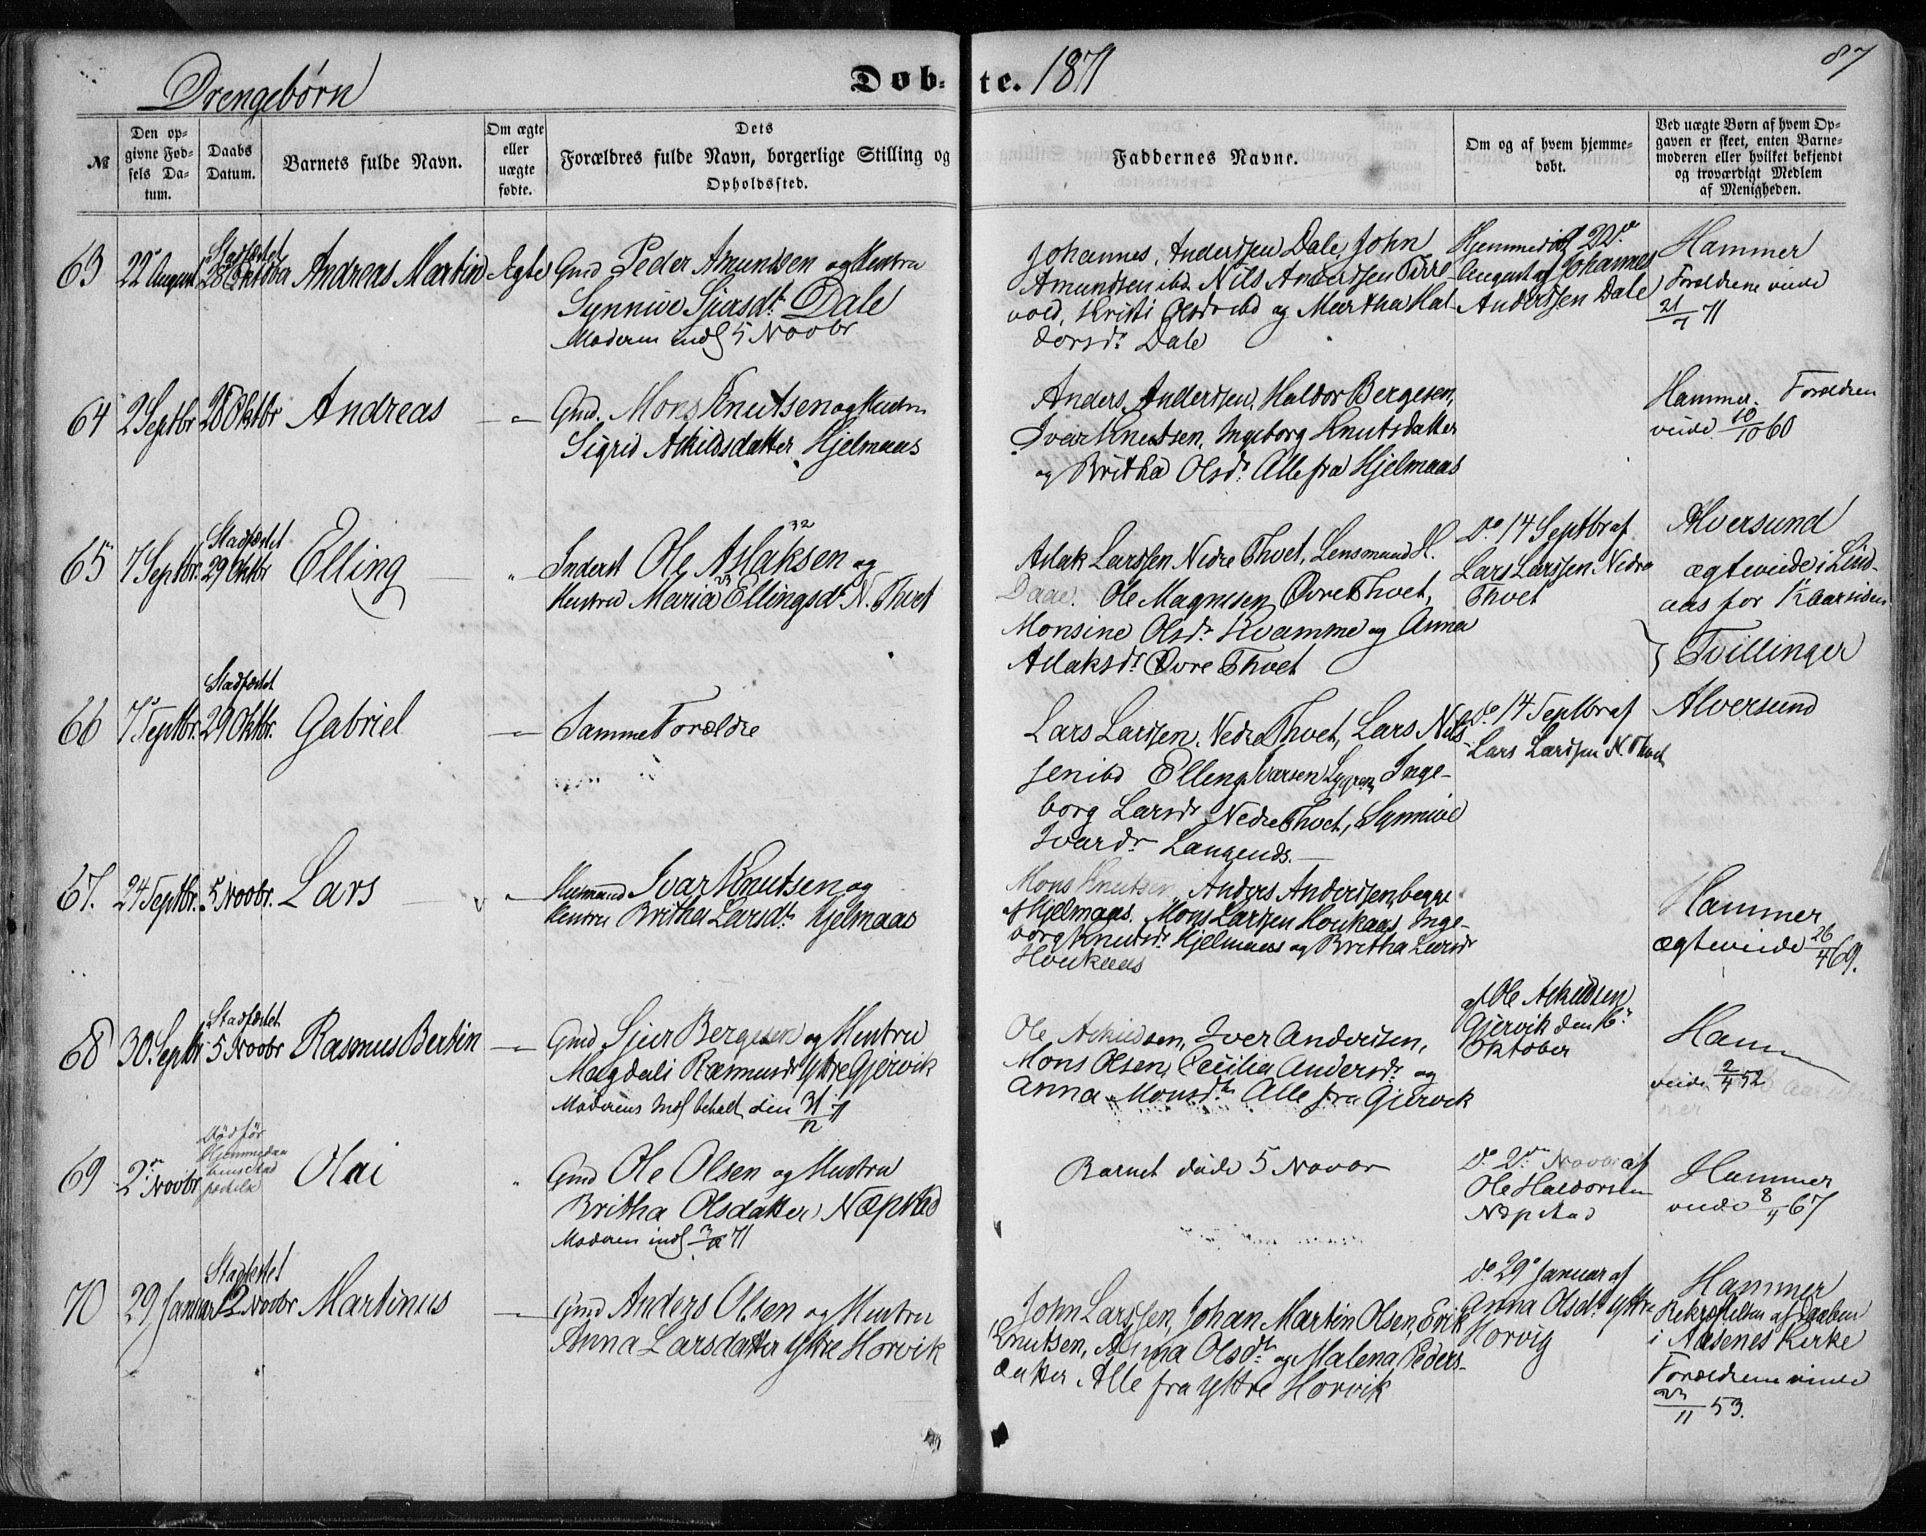 Drengebørn
Døbte. 1871
87
№
Den op-
givne Fød-
sels Da-
tum.
Daabs
Datum.
Barnets fulde Navn.
Om ægte
eller
uægte
fødte.
Dets
Forældres fulde Navn, borgerlige Stilling og
Opholdssted.
Faddernes Navne.
Om og af hvem hjemme-
døbt.
Ved uægte Børn af hvem Op-
gaven er skeet, enten Barne-
moderen eller hvilket bekjendt
og troværdigt Medlem
af Menigheden.
63
22 August
Stadfæstet
28 Oktober
Andreas Martin
Ægte
Gmd Peder Amundsen og Hustru
Synnive Sjursdr. Dale
Moderen indl 5 Novbr
Johannes Anderssen Dale, John
Amundsen ibd Nils Anderssen
vold, Kristi Olsdr ibd og Martha Hal-
dorsdr. Dale
Hjemmedøbt 22de
August af Johannes
Anderssen Dale
Hammer
Forældrene viede
21/7 71
64
2 Septbr
28 Oktbr
Andreas
— " —
Gmd. Mons Knutsen og Hustru
Sigrid Askildsdatter Hjelmaas
Anders Anderssen, Haldor Bergesen,
Ivar Knutsen, Ingeborg Knutsdatter
og Britha Olsdr. Alle fra Hjelmaas
Hammer. Forældren
viede 10/10 60
65
7 Septbr.
Stadfæstet
29 Oktbr
Elling
— "
Inderst Ole Aslaksen 32 og
Hustru Maria Ellingsdr N. Thvet
Aslak Larssen Nedre Thvet, Lensmand H.
Daae. Ole Magnesen Øvre Thvet,
Monsine Olsdr. Kvamme og Anna
Aslaksdr Øvre Thvet
Do 14 Septbr af
Lars Larssen Nedre
Thvet
Alversund
ægteviede i Lind-
aas for
} Tvillinger
66
7 Septbr.
Stadfæstet
29 Oktbr.
Gabriel
— " —
Samme Forældre
Lars Larssen, Nedre Thvet, Lars Nils-
sen ibd Elling Ivarsen Inge-
borg Larsdr Nedre Thvet, Synnive
Ivarsdr Langenes. —
Do 14 Septbr af
Lars Larssen N. Thvet
Alversund
67.
24 Septbr.
5 Novbr.
Lars
— " —
Husmand Ivar Knutsen og
Hustru Britha Larsdr. Hjelmaas
Mons Knutsen, Anders Anderssen, begge
af Hjelmaas. Mons Larssen Houkaas, Inge-
borg Knutsdr. Hjelmaas og Britha Larsdr
Houkaas
Hammer
ægteviede 26/4 69.
68
30 Septbr
Stadfæstet
5 Novbr
Rasmus Bertin
— " —
Gmd Sjur Bergesen og Hustru
Magdali Rasmusdr Ytre Gjervik
Moderens Indl behøl den 31/12 71
Ole Askildsen, Iver Anderssen,
Mons Olsen, Cecilia Andersdr. og
Anna Monsdr. Alle fra Gjervik
af Ole Askildsen
Gjervik den 16
Oktober
Ham
viede 2/4 52
69
2 Novbr
Død før
Hjemmedaa
bens Stad
fæstelse
Olai
"
Gmd Ole Olsen og Hustru
Britha Olsdatter Næpstad
Moderen indl 71
Barnet døde 5 Novbr
Do 2den Novbr af
Ole Haldorsen
Næpstad
Hammer
viede 8/4 67
70
29 Januar
Stadfæstet
12 Novbr
Martinus
—
Gmd Anders Olsen og Hustru
Anna Larsdatter Ytre Horvik
John Larssen, Johan Martin Olsen, Erik
Knutsen, Anna Olsdr. og Malena Peders-
datter. Alle fra Ytre Horvik
Do 29 Januar af
Anna Olsdr. Ytre
Horvig
Hammer
Bekræftelsen af Daaben
i Aasenes Kirke
Forældrene viede
/11 53.